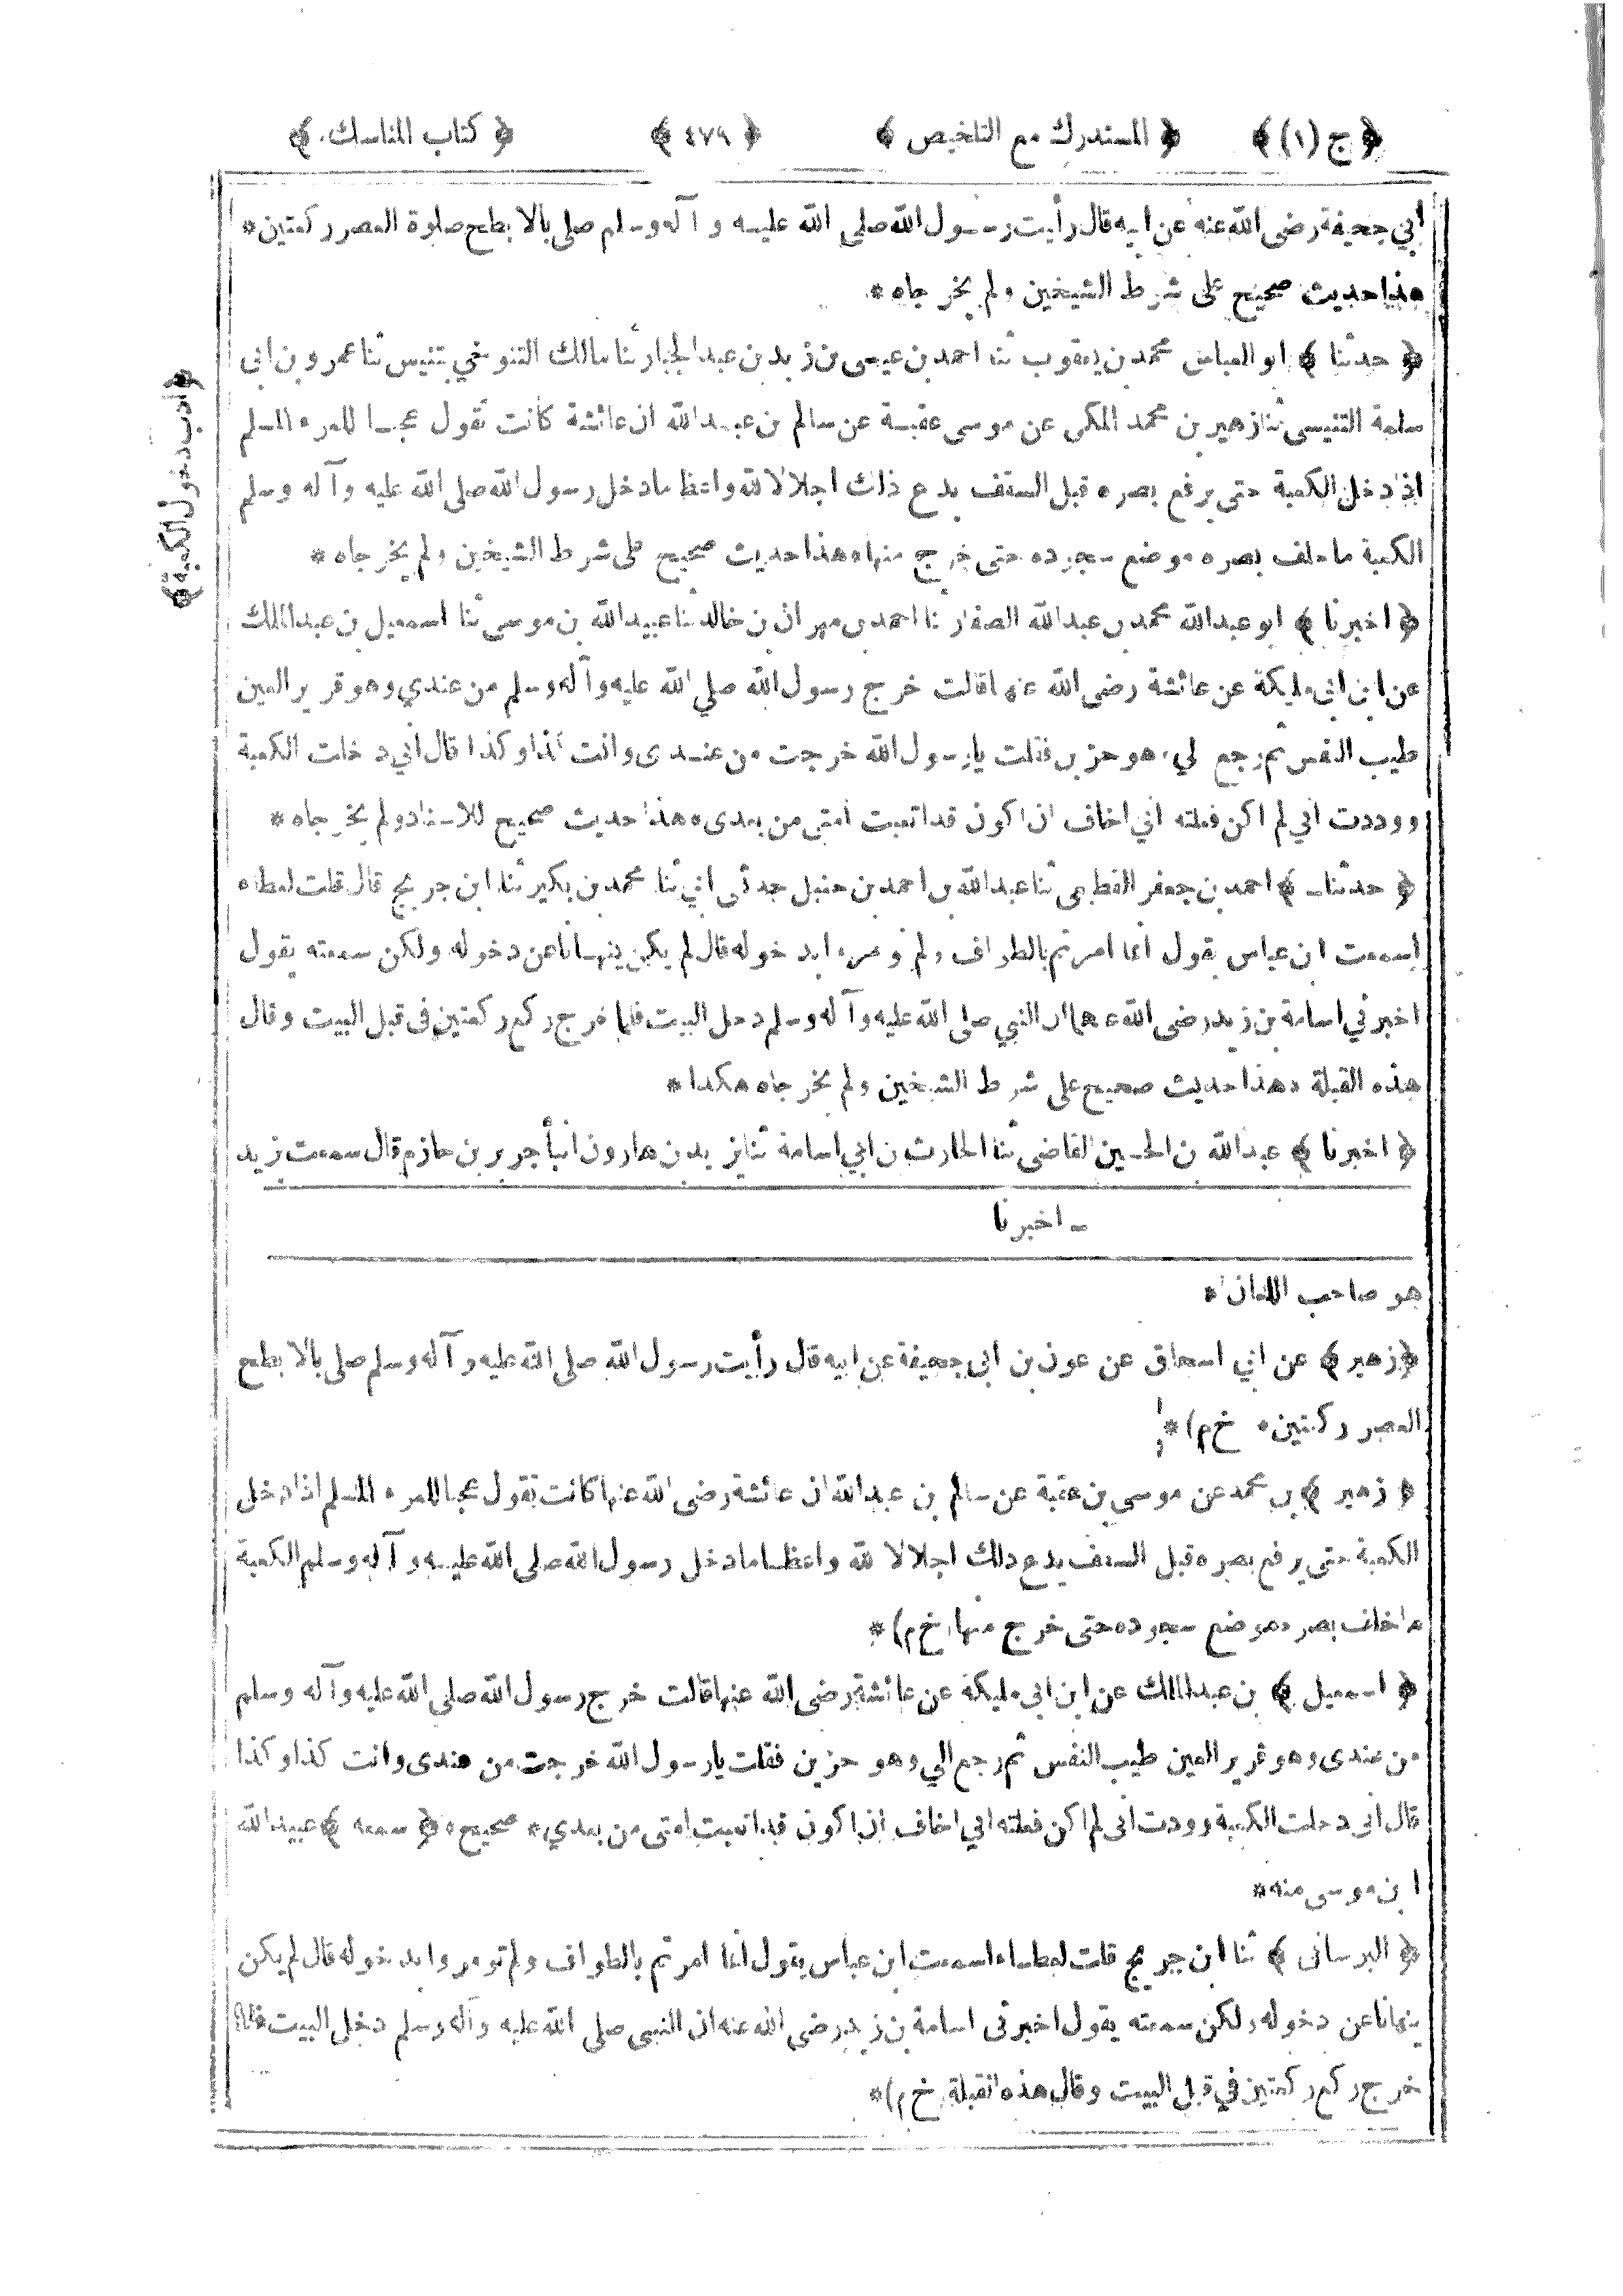 ﴿ ج (١) ﴾ ﴿ المستدرك مع التلخيص ﴾ ﴿ ٤٧٩ ﴾ ﴿ كتاب المناسك ﴾
أبي جحيفة رضى الله عنه عن ابيه قال رأيت رسول الله صلى الله عليه وآله وسلم صلى بالابطح صلوة العصر ركعتين *
هذا حديث صحيح على شرط الشيخين ولم يخرجاه *
﴿ حدثنا ﴾ ابو العباس محمد بن يعقوب ثنا احمد بن عيسى بن زيد بن عبد الجبار ثنا مالك التنوخي بتنيس ثنا عمرو بن ابى
سلمة التنيسى ثنا زهير بن محمد المكى عن موسى عقبة عن سالم بن عبد الله ان عائشة كانت تقول عجبا للمرء المسلم
اذا دخل الكعبة حتى يرفع بصره قبل السقف يدع ذلك اجلالا لله واعظاما دخل رسول الله صلى الله عليه وآله وسلم
الكعبة ما خلف بصره موضع سجوده حتى خرج منها * هذا حديث صحيح على شرط الشيخين ولم يخرجاه *
﴿ اخبرنا ﴾ ابو عبد الله محمد بن عبد الله الصفار ثنا احمد بن مهران بن خالد ثنا عبيد الله بن موسى ثنا اسمعيل بن عبد الملك
عن ابن ابى مليكة عن عائشة رضى الله عنها قالت خرج رسول الله صلي الله عليه وآله وسلم من عندي وهو قرير العين
طيب النفس ثم رجع لي وهو حزين فقلت يارسول الله خرجت من عندى وانت كذا وكذا قال أني دخلت الكعبة
ووددت اني لم اكن فعلته اني اخاف ان اكون قد اتعبت امتى من بعدى * هذا حديث صحيح للاسناد ولم يخرجاه *
﴿ حدثنا ـ ﴾ احمد بن جعفر القطيعى ثنا عبد الله بن احمد بن حنبل حدثنى ابي ثنا محمد بن بكير ثنا ابن جريج قال قلت لعطاء
اسمعت ابن عباس يقول انما امرتم بالطواف ولم تومروا بدخوله قال لم يكن ينهانا عن دخوله ولكن سمعته يقول
اخبرني اسامة بن زيد رضى الله عنهما ان النبي صلى الله عليه وآله وسلم دخل البيت فلما خرج ركع ركعتين فى قبل البيت وقال
هذه القبلة * هذا حديث صحيح على شرط الشيخين ولم يخرجاه هكذا *
﴿ اخبرنا ﴾ عبد الله بن الحسين القاضى ثنا الحارث بن ابي اسامة ثنا يزيد بن هارون انبأ جرير بن حازم قال سمعت زيد
﴿ ادب دخول الكعبة ﴾
ـ اخبرنا
هو صاحب اللعان *
﴿ زهير ﴾ عن ابي اسحاق عن عون بن ابى جحيفة عن ابيه قال رأيت رسول الله صلى الله عليه وآله وسلم صلى بالابطح
العصر ركعتين * خ م) *
﴿ زهير ﴾ بن محمد عن موسى بن عقبة عن سالم بن عبد الله ان عائشة رضى الله عنها كانت تقول عجبا للمرء المسلم اذا دخل
الكعبة حتى يرفع بصره قبل السقف يدع ذلك اجلالا لله واعظاما دخل رسول الله صلى الله عليه وآله وسلم الكعبة
ما خلف بصره موضع سجوده حتى خرج منها (خ م) *
﴿ اسمعيل ﴾ بن عبد الملك عن ابن ابى مليكة عن عائشة رضى الله عنها قالت خرج رسول الله صلى الله عليه وآله وسلم
من عندى وهو قرير العين طيب النفس ثم رجع الي وهو حزين فقلت يارسول الله خرجت من عندى وانت كذا وكذا
قال انى دخلت الكعبة ووددت انى لم اكن فعلته اني اخاف ان اكون قد اتعبت امتى من بعدي * صحيح * ﴿ سمعه ﴾ عبيد الله
ابن موسى منه *
﴿ البرسانى ﴾ ثنا ابن جريج قلت لعطاء اسمعت ابن عباس يقول انما امرتم بالطواف ولم تومروا بدخوله قال لم يكن
ينهانا عن دخوله ولكن سمعته يقول اخبرنى اسامة بن زيد رضى الله عنه ان النبى صلى الله عليه وآله وسلم دخل البيت فلما
خرج ركع ركعتين في قبل البيت وقال هذه القبلة (خ م) *